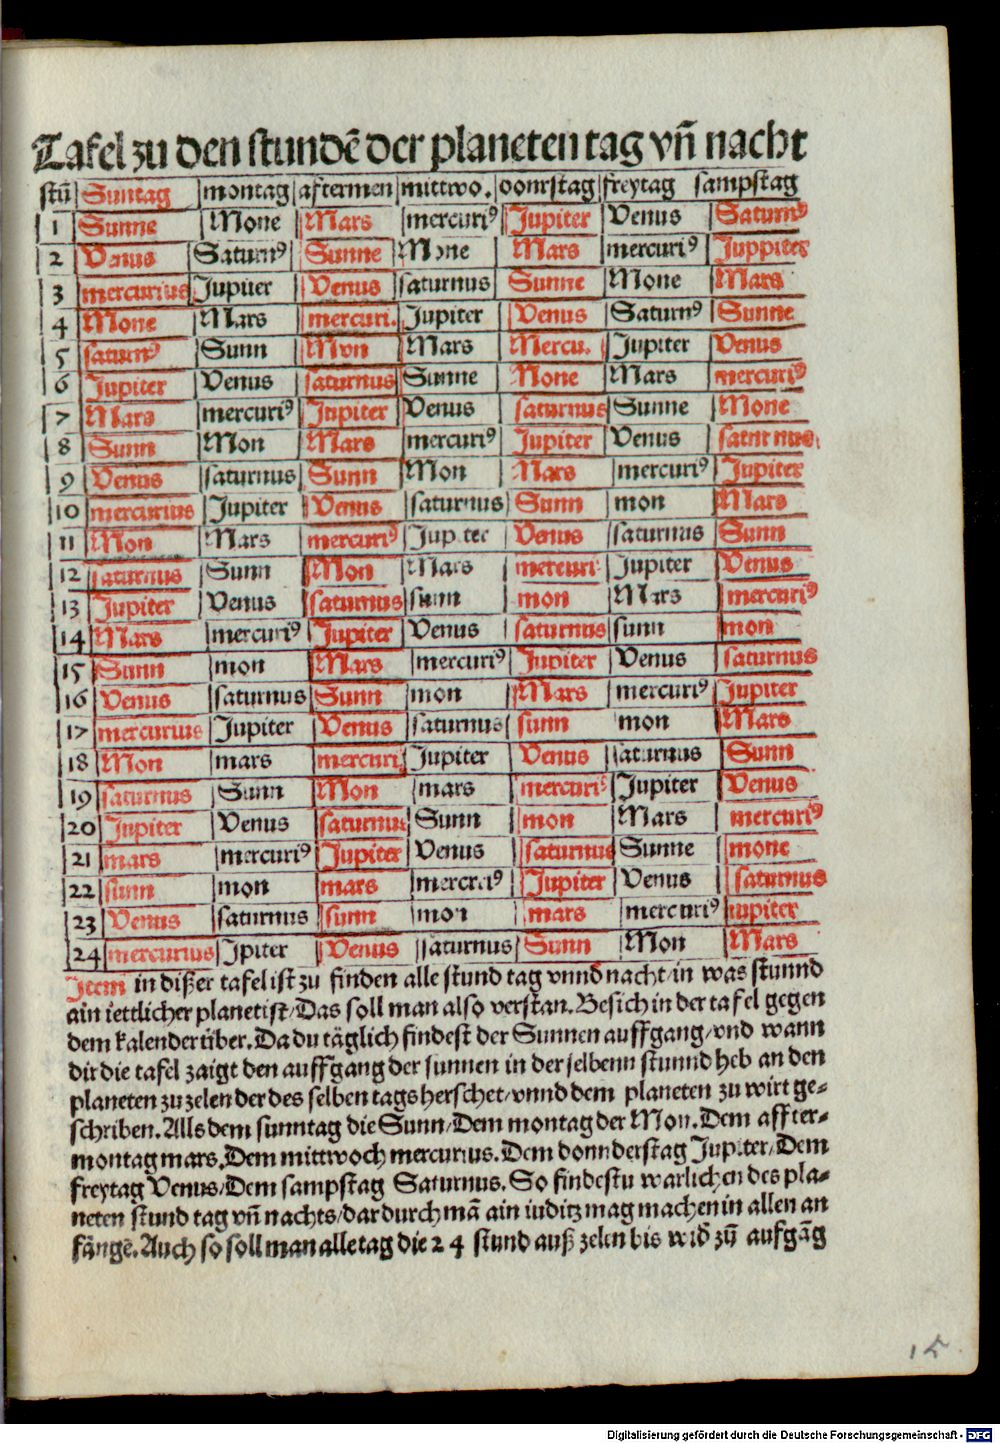 Tafel zu den stundē der planeten tag vn̄ nacht
stū Suntag montag aftermen mittwo. donrstag freytag sampstag
1 Sunne Mone Mars mercuriꝰ Jupiter Venus Saturnꝰ
2 Venus Saturnꝰ Sunne Mone Mars mercuriꝰ Juppiter
3 mercurius Jupiter Venus saturnus Sunne Mone Mars
4 Mone Mars mercuri. Jupiter Venus Saturnꝰ Sunne
5 saturnꝰ Sunn Mon Mars Mercu. Jupiter Venus
6 Jupiter Venus saturnus Sunne Mone Mars mercuriꝰ
7 Mars mercuriꝰ Jupiter Venus saturnus Sunne Mone
8 Sunn Mon Mars mercuriꝰ Jupiter Venus saturnus
9 Venus saturnus Sunn Mon Mars mercuriꝰ Jupiter
10 mercurius Jupiter Venus saturnus Sunn mon Mars
11 Mon Mars mercuriꝰ Jupiter Venus saturnus Sunn
12 saturnus Sunn Mon Mars mercuri. Jupiter Venus
13 Jupiter Venus saturnus sunn mon Mars mercuriꝰ
14 Mars mercuriꝰ Jupiter Venus saturnus sunn mon
15 Sunn mon Mars mercuriꝰ Jupiter Venus saturnus
16 Venus saturnus Sunn mon Mars mercuriꝰ Jupiter
17 mercurius Jupiter Venus saturnus sunn mon Mars
18 Mon mars mercuri. Jupiter Venus saturnus Sunn
19 saturnus Sunn Mon mars mercuriꝰ Jupiter Venus
20 Jupiter Venus saturnus Sunn mon Mars mercuriꝰ
21 mars mercuriꝰ Jupiter Venus saturnus Sunne mone
22 sunn mon mars mercuriꝰ Jupiter Venus saturnus
23 Venus saturnus sunn mon mars mercuriꝰ iupiter
24 mercurius Jpiter Venus saturnus Sunn Mon Mars
Item in dißer tafel ist zu finden alle stund tag vnnd nacht/in was stunnd
ain iettlicher planet ist/Das soll man also verstan. Besich in der tafel gegen
dem kalender über. Da du täglich findest der Sunnen auffgang/vnd wann
dir die tafel zaigt den auffgang der sunnen in der selbenn stunnd heb an den
planeten zu zelen der des selben tags herschet/vnnd dem planeten zu wirt ge-
schriben. Alls dem sunntag die Sunn/Dem montag der Mon. Dem affter-
montag mars. Dem mittwoch mercurius. Dem donnderstag Jupiter/Dem
freytag Venus/Dem sampstag Saturnus. So findestu warlichen des pla-
neten stund tag vn̄ nachts/dardurch mā ain iuditz mag machen in allen an
fängē. Auch so soll man alle tag die 24 stund auß zelen bis wid zū aufgāg
15
Digitalisierung gefördert durch die Deutsche Forschungsgemeinschaft - DFG